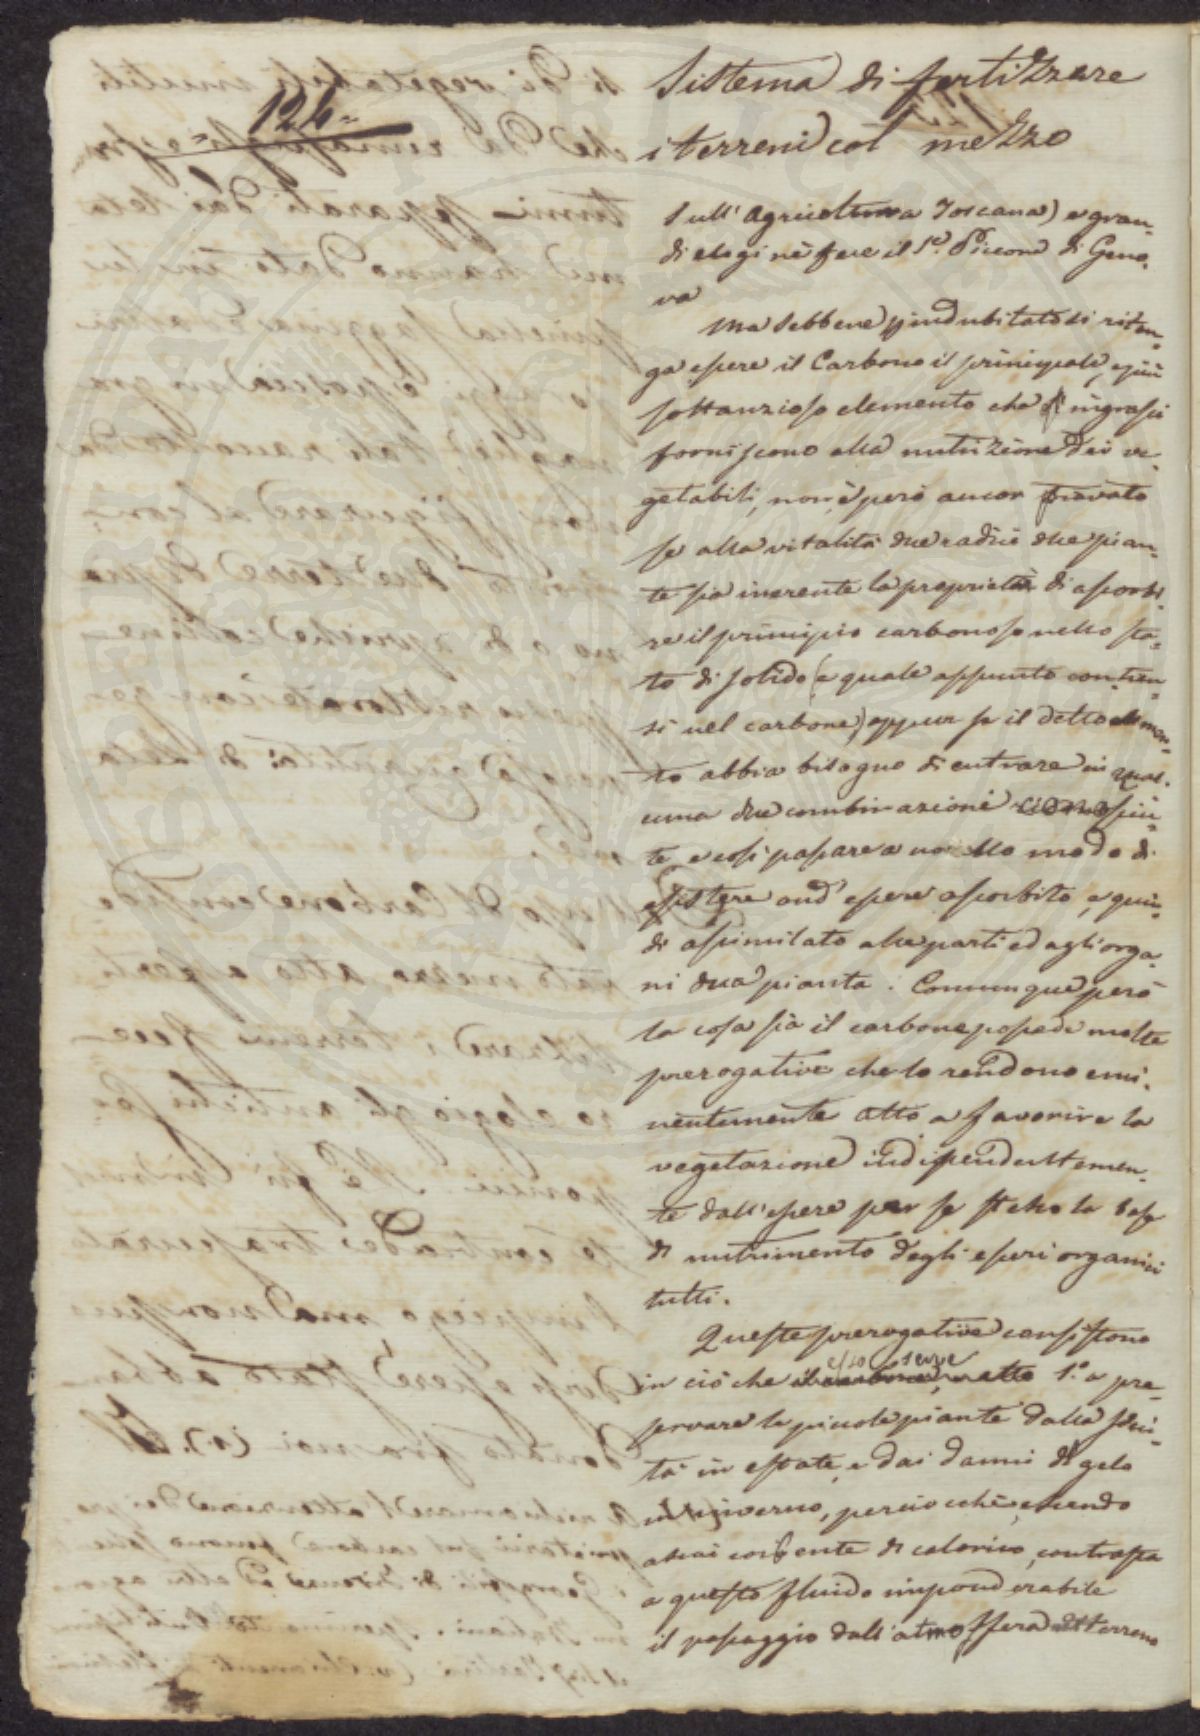 124=
Sistema di fertizzare
i terreni col mezzo
sull'Agricoltura Toscana) e gran-
di elogi ne fece il Sr. Piccone di Geno-
va
Ma sebbene indubitato si riten-
ga essere il Carbonio il principale, e più
sostanzioso elemento che gl'ingrassi
forniscono alla nutrizione dei ve-
getabili, non è però ancor provato
se alla vitalità due radici due pian-
te sia inerente la proprietà di assorbi-
re il principio carbonoso nello sta-
to di solido (e quale appunto contien-
si nel carbone) oppur se il detto elemen-
to abbia bisogno di entrare in qual-
cuna due combinazioni
te, e così passare a novello modo di
esistere ond'essere assorbito, e quin-
di assimilato alle parti ed agli orga-
ni dua pianta. Comunque però
la cosa sia il carbone possede molte
prerogative che lo rendono emi-
nentemente atto a favorire la
vegetazione indipendentemen-
te dall'essere per se stesso la base
di nutrimento degli esseri organici
tutti.
Queste prerogative consistono
in ciò che esso serve 1.o a pre-
servare le piccole piante dalla sicci-
tà in estate, e dai danni di gelo
in inverno, perciocchè essendo
assai coibente di calorico, contrasta
a questo fluido imponderabile
il passaggio dall'atmosfera al terreno